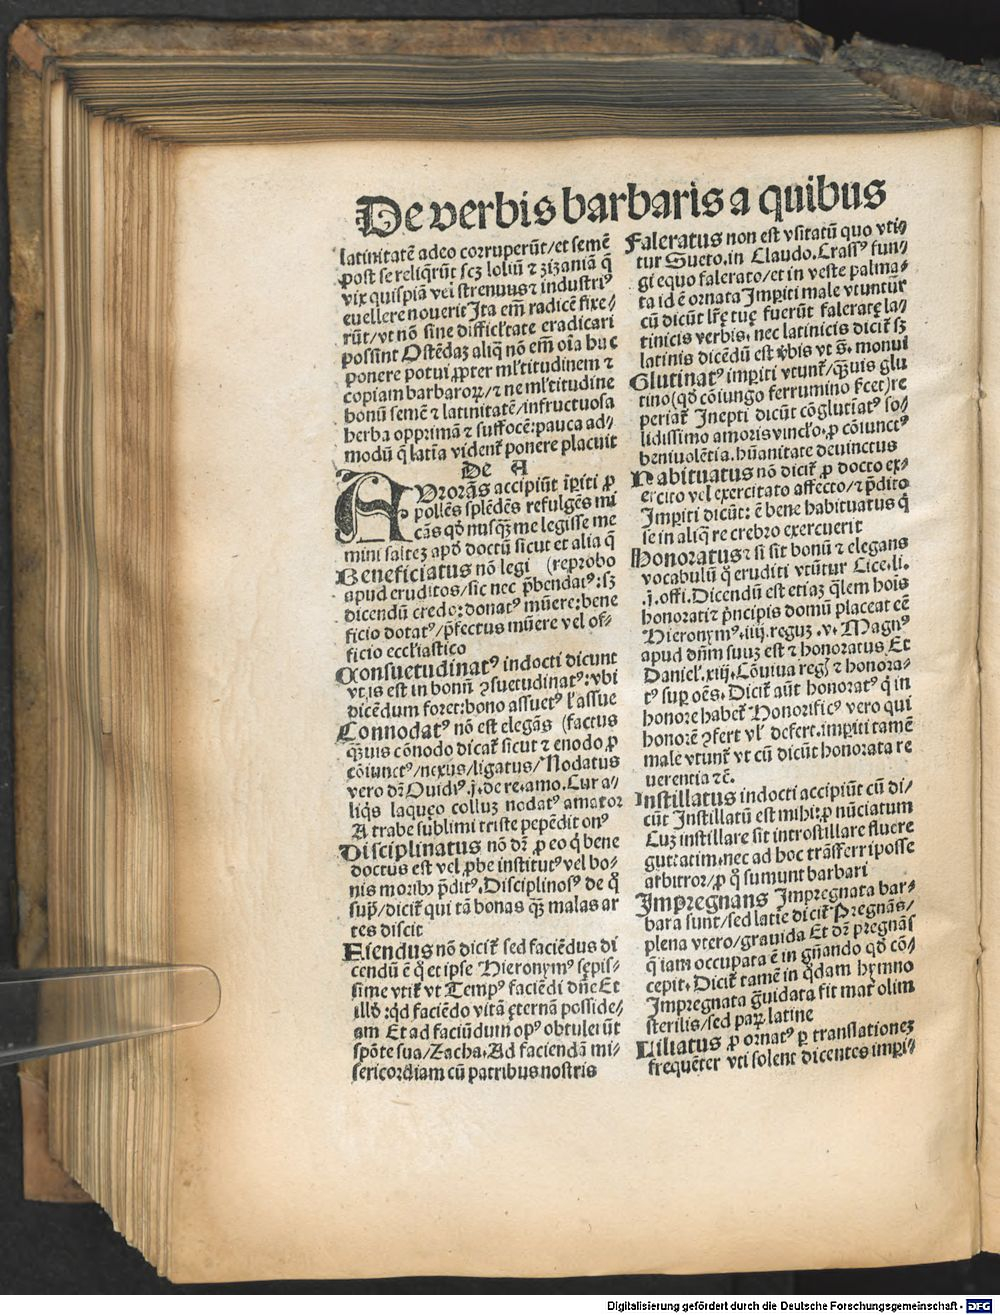 De verbis barbaris a quibus
latinitatē adeo corruperūt/et semē
post se reliq̄rūt scʒ loliū ⁊ zizaniā q̄
vix quispiā vel strenuus ⁊ industriꝰ
euellere nouerit Ita em̄ radicē fixe/
rūt/vt nō sine difficl̓tate eradicari
possint Ostēdaʒ aliq̄ nō em̄ oīa huc
ponere potui ꝓpter ml̓titudinem ⁊
copiam barbaroꝝ/⁊ ne ml̓titudine
bonū semē ⁊ latinitatē/infructuosa
herba opprimā ⁊ suffocē: pauca ad-
modū q̄ latīa vident̄ ponere placuit
De A
accipiūt īꝑiti ꝓ
pollēs splēdēs refulgēs mi
cās qd̓ nusq̄ʒ me legisse me
mini salteʒ apd̓ doctū sicut et alia q̄
Beneficiatus nō legi (reprobo
apud eruditos/sic nec p̄bendatꝰ: sʒ
dicendū credo: donatꝰ mūere: bene
ficio dotatꝰ/p̄fectus mūere vel of-
ficio eccl̓iastico
Consuetudinatꝰ indocti dicunt
vt is est in bonū ꝯsuetudinatꝰ: vbi
dicēdum foret: bono assuetꝰ l̓ assue
Connodatꝰ nō est elegās (factus
q̄ʒuis cōnodo dicat̄ sicut ⁊ enodo ꝓ
cōiunctꝰ/nexus/ligatus/Nodatus
vero dr̄ Ouidiꝰ .j. de re. amo. Cur a-
liq̓s laqueo colluʒ nodatꝰ amator
A trabe sublimi triste pepēdit onꝰ
Disciplinatus nō dr̄ ꝓ eo q̓ bene
doctus est vel ꝓbe institutꝰ vel bo-
nis moribꝰ p̄ditꝰ. Disciplinosꝰ de q̊
sup̄/dicit̄ qui tā bonas q̄ʒ malas ar
tes discit
Fiendus nō dicit̄ sed faciēdus di
cendū ē q̊ et ipse Hieronymꝰ sepis-
sime vtit̄ vt Tempꝰ faciēdi dn̄e Et
illd̓: qd̓ faciēdo vitā eternā posside/
am Et ad faciūdum opꝰ obtulerūt
spōte sua/Zacha. Ad faciendā mi-
sericordiam cū patribus nostris
Faleratus non est vsitatū quo vti/
tur Sueto. in Claudo. Crassꝰ fun/
gi equo falerato/et in veste palma-
ta id ē ornata Imꝑiti male vtuntur
cū dicūt lr̄e tue fuerūt falerate la-
tinicis verbis. nec latinicis dicit̄ sʒ
latinis dicēdū est v̓bis vt s̄. monui
Glutinatꝰ imꝑiti vtunt̄/q̄ʒuis glu
tino(qd̓ cōiungo ferrumino
periat̄ Inepti dicūt cōglutīatꝰ so/
lidissimo amoris vincl̓o. ꝓ cōiunctꝰ
beniuolētia. hūanitate deuinctus
Habituatus nō dicit̄ ꝓ docto ex-
ercito vel exercitato affecto/⁊ p̄dito
Imꝑiti dicūt: ē bene habituatus q̓
se in aliq̄ re crebro exercuerit
Honoratus ⁊ si sit bonū ⁊ elegans
vocabulū q̊ eruditi vtūtur Cice. li.
.j. offi. Dicendū est etiaʒ q̄lem hois
honorati ⁊ p̄ncipis domū placeat eē
Hieronymꝰ. iiij. regūʒ .v. Magnꝰ
apud dn̄m suuʒ est ⁊ honoratus Et
Daniel̓. xiij. Cōuiua regꝭ ⁊ honora-
tꝰ suꝑ oēs. Dicit̄ aūt honoratꝰ q̓ in
honore habet̄ Honorificꝰ vero qui
honorē ꝯfert vl̓ defert. imꝑiti tamē
male vtunt̄ vt cū dicūt honorata re
uerentia ⁊c̄.
Instillatus indocti accipiūt cū di/
cūt Instillatū est mihi: ꝓ nūciatum
Cuʒ instillare sit introstillare fluere
guttatim. nec ad hoc trāsferri posse
arbitror/ꝓ q̊ sumunt barbari
Impregnans Impregnata bar-
bara sunt/sed latīe dicit̄ Pregnās/
plena vtero/grauida Et dr̄ pregnās
q̄ iam occupata ē in gn̄ando qd̓ cō-
cepit. Dicit̄ tamē in q̄dam hymno
Impregnata gͣuidata fit mat̄ olim
sterilis/sed paꝝ latine
Liliatus ꝓ ornatꝰ ꝑ translationeʒ
frequēter vti solent dicentes imꝑi/
Digitalisierung gefördert durch die Deutsche Forschungsgemeinschaft - DFG